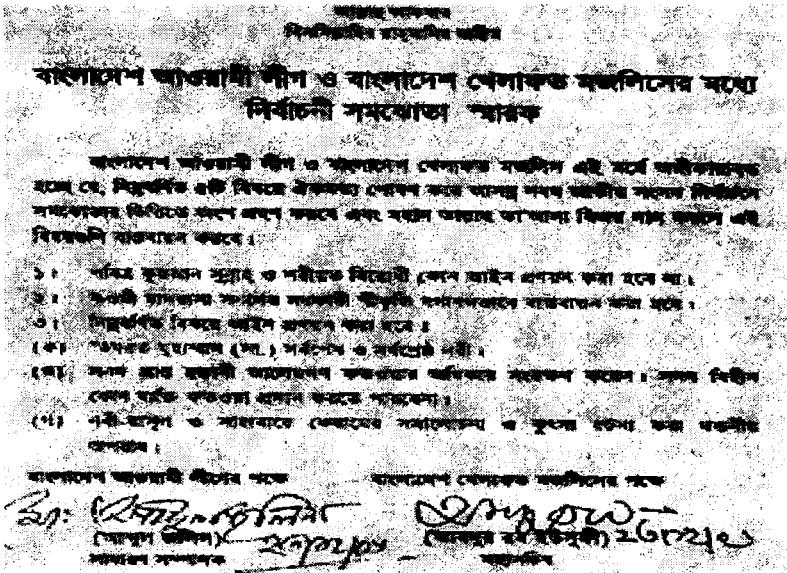 আল্লাহু আকবার
বিসমিল্লাহির রাহমানির রাহীম
বাংলাদেশ আওয়ামী লীগ ও বাংলাদেশ খেলাফত মজলিসের মধ্যে
নির্বাচনী সমঝোতা স্মারক
বাংলাদেশ আওয়ামী লীগ ও বাংলাদেশ খেলাফত মজলিস এই মর্মে অঙ্গীকারাবদ্ধ
হচ্ছে যে, নিম্নবর্ণিত ৫টি বিষয়ে ঐকমত্য পোষণ করে আসন্ন নবম জাতীয় সংসদ নির্বাচনে
সমঝোতার ভিত্তিতে অংশ গ্রহণ করবে এবং মহান আল্লাহ তা'আলা বিজয় দান করলে এই
বিষয়গুলি বাস্তবায়ন করবে।
১। পবিত্র কুরআন সুন্নাহ ও শরীয়ত বিরোধী কোন আইন প্রণয়ন করা হবে না।
২। কওমী মাদরাসা সনদের সরকারী স্বীকৃতি যথাযথভাবে বাস্তবায়ন করা হবে।
৩। নিম্নবর্ণিত বিষয়ে আইন প্রণয়ন করা হবে ঃ
(ক) হযরত মুহাম্মদ (সা.) সর্বশেষ ও সর্বশ্রেষ্ঠ নবী।
(খ) সনদ প্রাপ্ত হক্কানী আলেমগণ ফতওয়ার অধিকার সংরক্ষণ করেন। সনদ বিহীন
কোন ব্যক্তি ফতওয়া প্রদান করতে পারবেনা।
(গ) নবী-রাসূল ও সাহাবায়ে কেরামের সমালোচনা ও কুৎসা রটনা করা দণ্ডনীয়
অপরাধ।
বাংলাদেশ আওয়ামী লীগের পক্ষে বাংলাদেশ খেলাফত মজলিসের পক্ষে
(আব্দুল জলিল) (আবদুর রব ইউসুফী)
সাধারণ সম্পাদক মহাসচিব